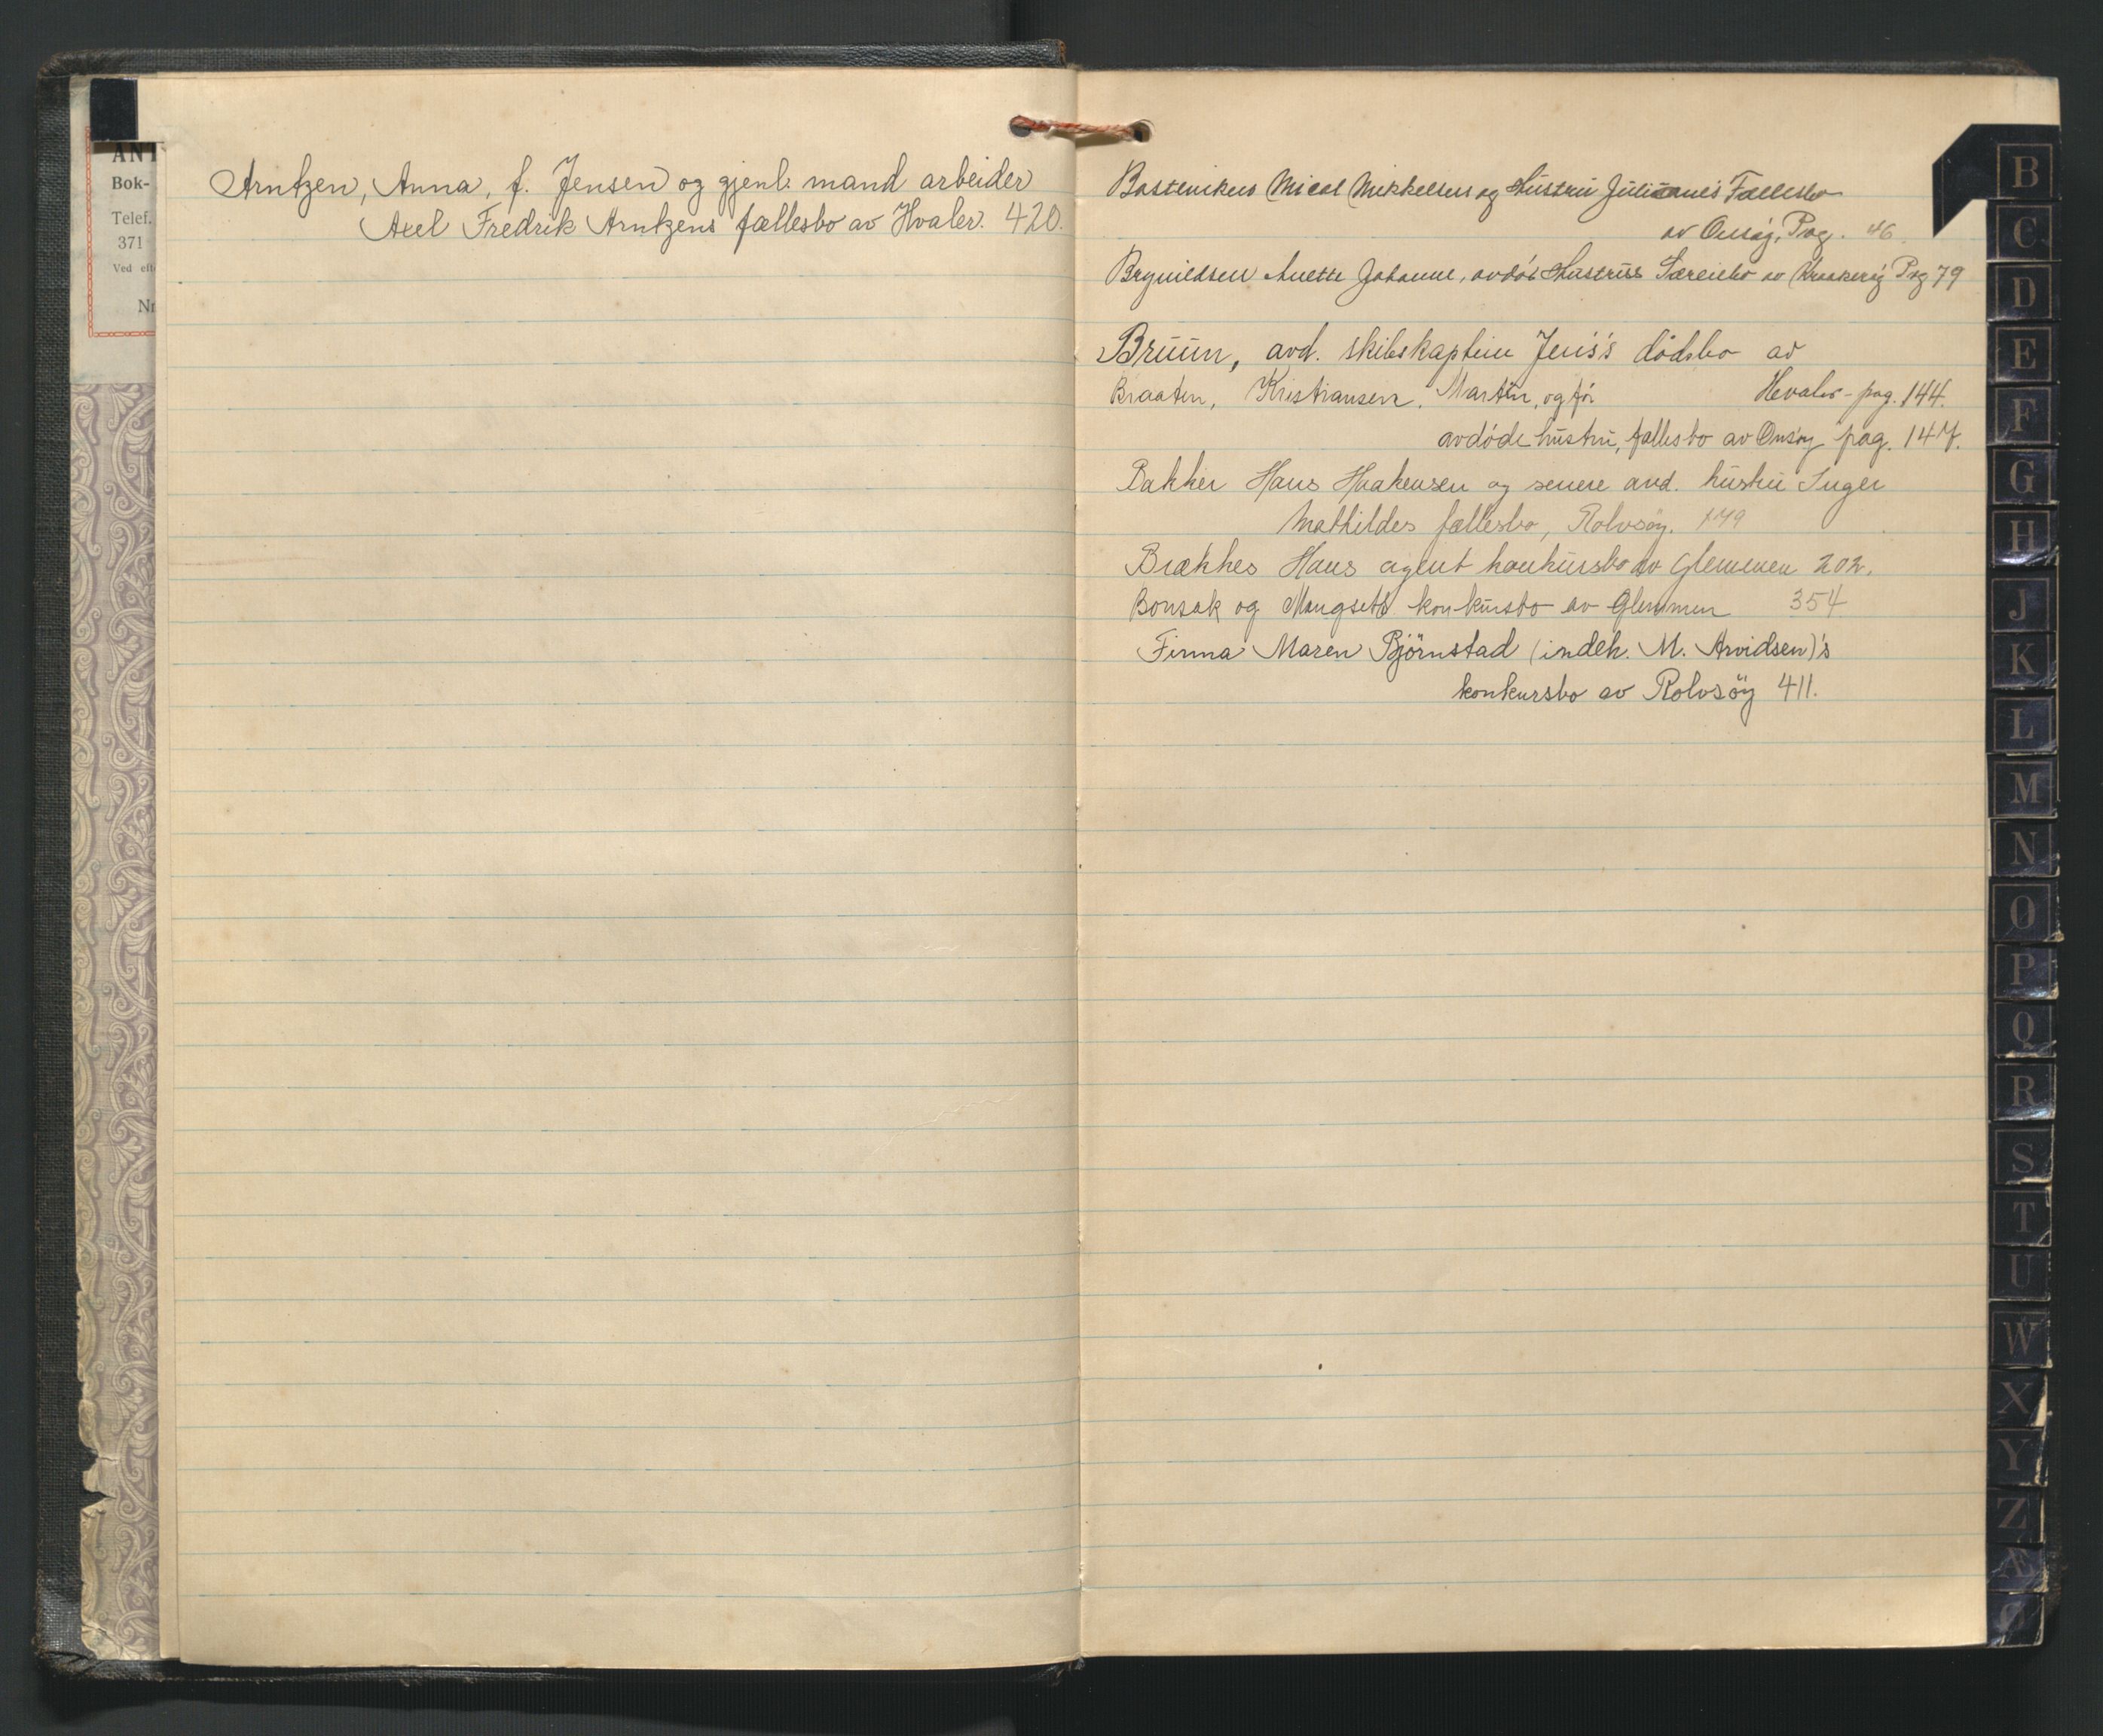 ANT
Bok-
Telef.
371
Ved eft
Nr
Arntzen, Anna, f. Jensen og gjenl. mand arbeider
Axel Fredrik Arntzens fællesbo av Hvaler. 420.
Mikkelsens og Hustru Julianes Fællesbo
av Onsøy, Pag. 46.
Brynildsen Anette Johanne, avdøe Hustrus Særeiebo av Kraakerøy Pag 79
Bruun, avd. skibskaptein Jens's dødsbo av
Braaten, Kristiansen, Martin, og før Hvaler - pag. 144.
avdøde hustru, fællesbo av Onsøy pag. 147.
Bakker Hans Haakensen og senere avd. hustru Inger
Mathildes fællesbo, Rolvsøy. 179
Brækkes Hans agent konkursbo av Glemmen 202.
Bonsak og konkursbo av Glemmen 354
Firma Maren Björnstad (indeh. M. Arvidsen)'s
konkursbo av Rolvsöy 411.
B
C
D
E
F
G
H
J
K
L
M
N
O
P
Q
R
S
T
U
W
X
Y
Z
Æ
Ø